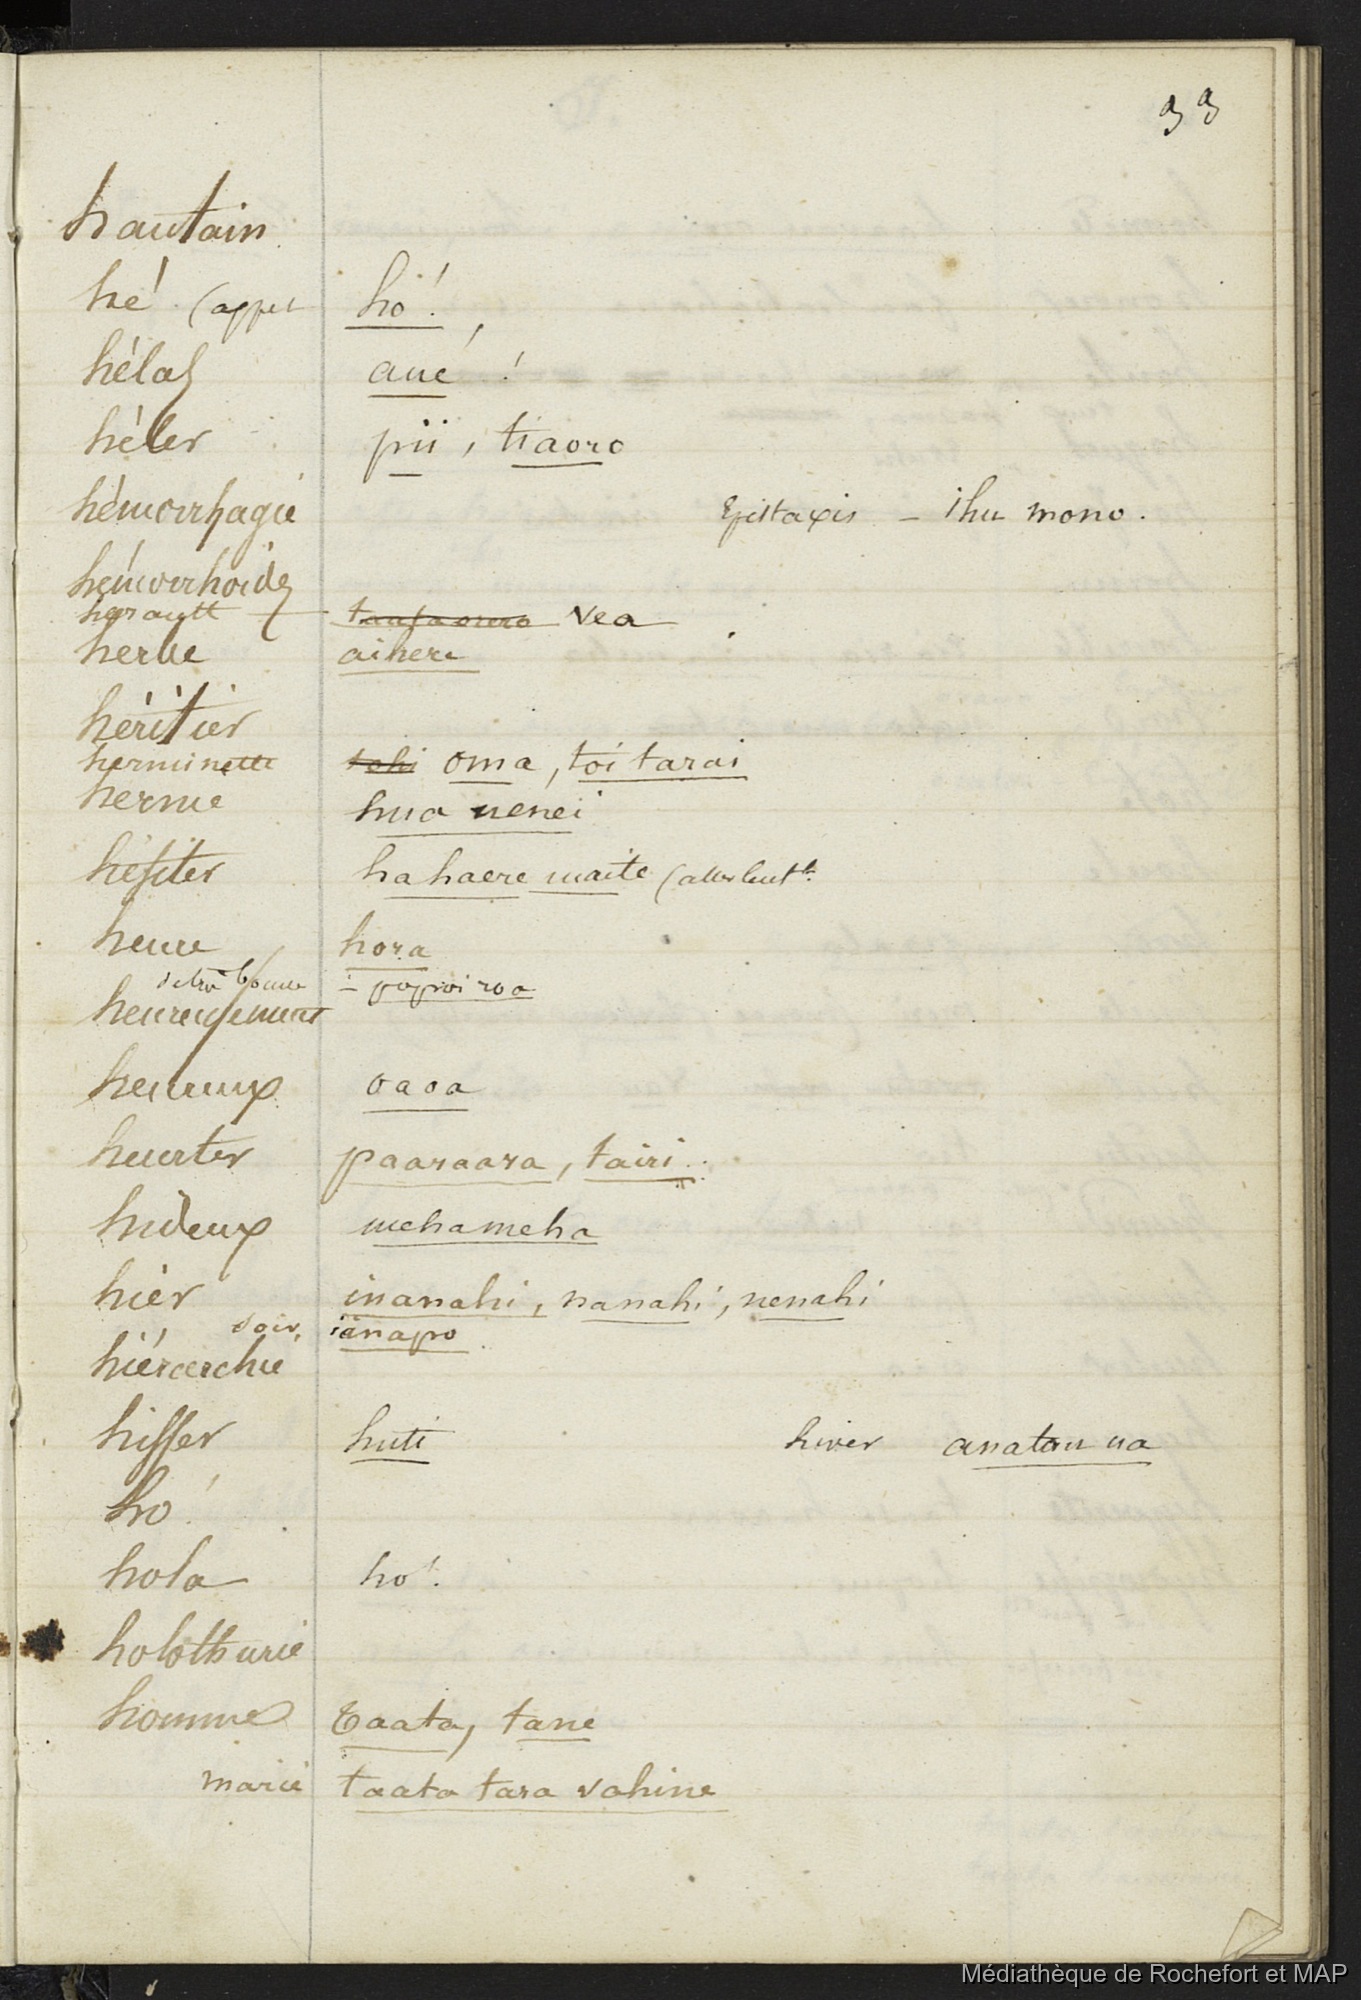 33
hautain
hé! (appel ho!
hélas aué!
héler pii, tiaoro
hémorrhagie Epistaxis - ihu mono.
hémorrhoides
hérault vea
herbe aihere
héritier
herminette tohi oma, toi tarai
hernie hua nenei
hésiter hahaere maite (aller lentt.
heure hora
de très bonne - popoi roa
heureusement
heureux oaoa
heurter paaraara, tairi.
hideux mehameha
hier inanahi, nanahi, nenahi
soir, ianapo
hiérarchie
hisser huti hiver anatau ua
ho!
hola ho!
holothurie
homme taata, tane
marié taata tara vahine
Médiathèque de Rochefort et MAP